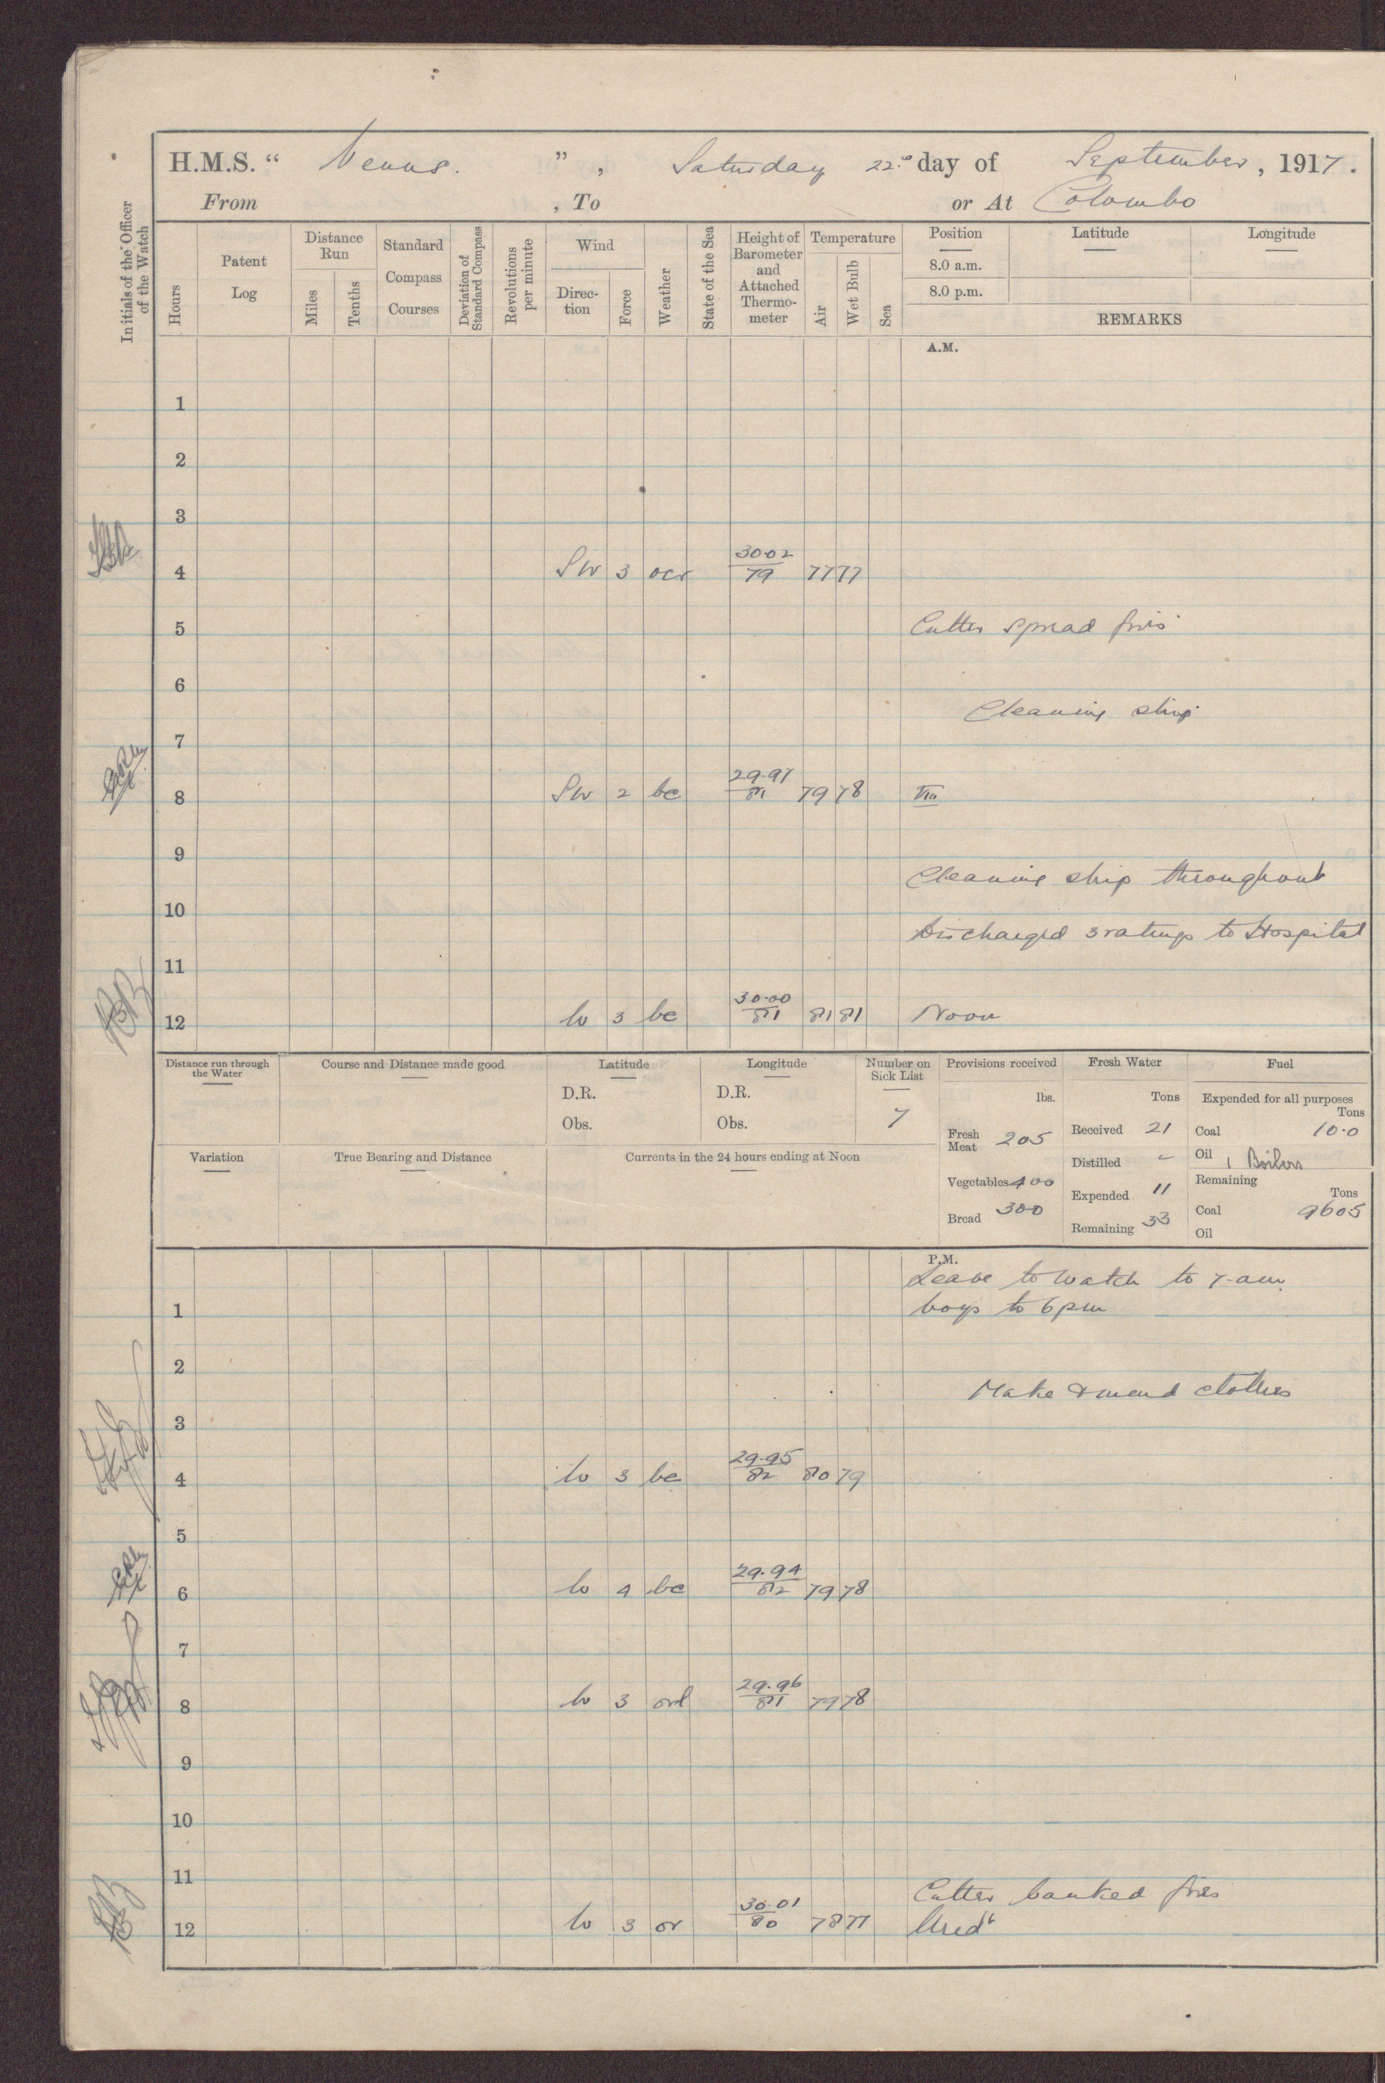 H.M.S. “ Venus. ” , Saturday 22nd day of September , 1917 .
From , To or At Colombo
Initials of the Officer of the Watch
Hours
Patent Log
Distance Run
Miles
Tenths
Standard Compass Courses
Deviation of Standard Compass
Revolutions per minute
Wind
Direc-tion
Force
Weather
State of the Sea
Height of Barometer and Attached Thermo-meter
Temperature
Air
Wet Bulb
Sea
Position
Latitude
Longitude
8.0 a.m.
8.0 p.m.
REMARKS
A.M.
1
2
3
4 SW 3 ocr 30.02/79 77 77
5 Cutter spread fires
6
Cleaning ship
7
8 SW 2 bc 29.97/81 79 78 VIII
9
Cleaning ship throughout
10
Discharged 3 ratings to Hospital
11
12 W 3 bc 30.00/81 81 81 Noon
Distance run through the Water
Course and Distance made good
Latitude
D.R.
Obs.
Longitude
D.R.
Obs.
Number on Sick List
7
Provisions received
lbs.
Fresh Meat 205
Vegetables 400
Bread 300
Fresh Water
Tons
Received 21
Distilled -
Expended 11
Remaining 33
Fuel
Expended for all purposes
Tons
Coal 10.0
Oil 1 Boilers
Remaining
Tons
Coal 9605
Oil
Variation
True Bearing and Distance
Currents in the 24 hours ending at Noon
P.M.
Leave to watch to 7 am.
1 boys to 6 pm
2
Make & mend clothes
3
4 W 3 bc 29.95/82 80 79
5
6 W 4 bc 29.94/82 79 78
7
8 W 3 orl 29.96/81 79 78
9
10
11
Cutter banked fires
12 W 3 or 30.01/80 78 77 Midt